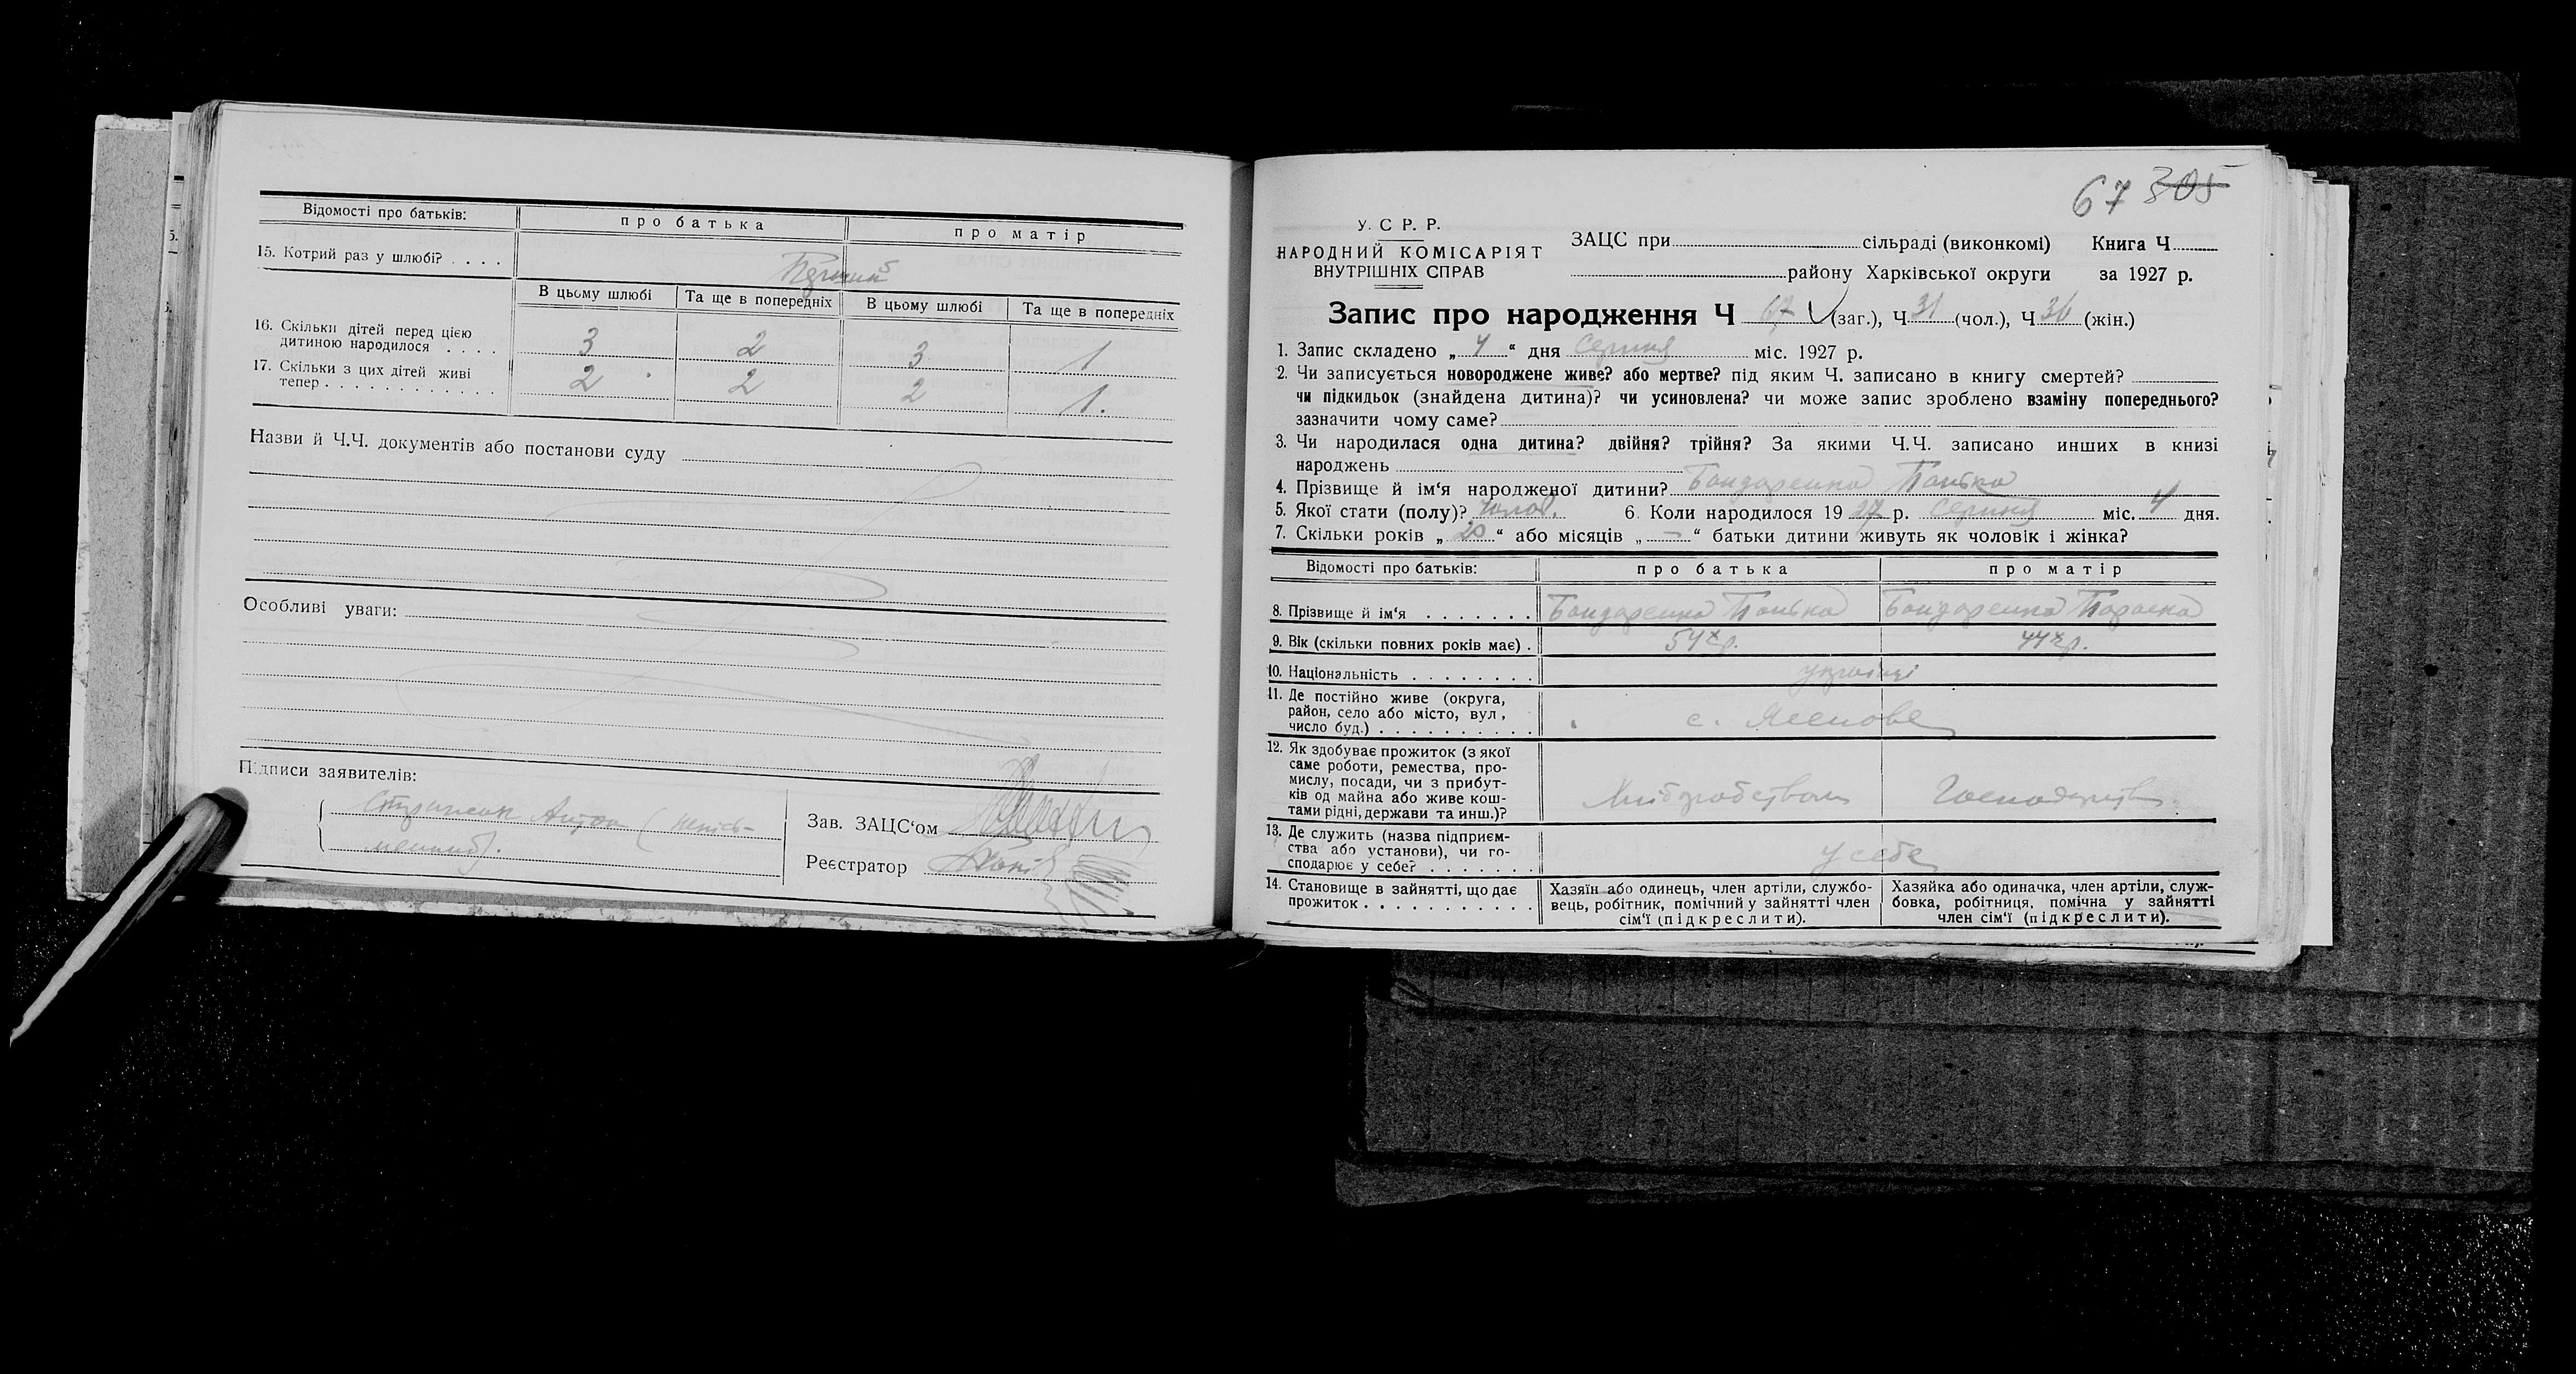 Відомості про батьків: про батька про матір
15. Котрий раз у шлюбі? . . . .
В цьому шлюбі Та ще в попередніх В цьому шлюбі Та ще в попередніх
16. Скільки дітей перед цією
дитиною народилося . . . . 3 2 3 1
17. Скільки з цих дітей живі
тепер . . . . . . . . . . . . 2 2 2 1.
Назви й Ч.Ч. документів або постанови суду
Особливі уваги:
Підписи заявителів:
Антон (
Зав. ЗАЦС‘ом
Реєстратор
67 305
У. С Р. Р.
НАРОДНИЙ КОМІСАРІЯТ
ВНУТРІШНІХ СПРАВ
ЗАЦС при сільраді (виконкомі) Книга Ч
району Харківської округи за 1927 р.
Запис про народження Ч 67 (заг.), Ч 31 (чол.), Ч 36 (жін.)
1. Запис складено „ 4 “ дня Серпня міс. 1927 р.
2. Чи записується новороджене живе? або мертве? під яким Ч. записано в книгу смертей?
чи підкидьок (знайдена дитина)? чи усиновлена? чи може запис зроблено взаміну попереднього?
зазначити чому саме?
3. Чи народилася одна дитина? двійня? трійня? За якими Ч.Ч. записано инших в книзі
народжень
4. Прізвище й ім‘я народженої дитини? Бондаренко
5. Якої стати (полу)? чолов. 6. Коли народилося 19 27 р. Серпня міс. 4 дня.
7. Скільки років „ 20 “ або місяців „ — “ батьки дитини живуть як чоловік і жінка?
Відомості про батьків: про батька про матір
8. Прізвище й ім‘я . . . . . . . Бондаренко Бондаренко Параска
9. Вік (скільки повних років має) . 54 р. 44 р.
10. Національність . . . . . . . . українці
11. Де постійно живе (округа,
район, село або місто, вул,
число буд.) . . . . . . . . . . с. Ясенове
12. Як здобуває прожиток (з якої
саме роботи, ремества, про-
мислу, посади, чи з прибут-
ків од майна або живе кош-
тами рідні, держави та инш.)? Хліборобством
13. Де служить (назва підприєм-
ства або установи), чи го-
сподарює у себе? . . . . . . . у себе
14. Становище в зайнятті, що дає
прожиток . . . . . . . . . . .
Хазяїн або одинець, член артіли, службо-
вець, робітник, помічний у зайнятті член
сім‘ї (підкреслити).
Хазяйка або одиначка, член артіли, служ-
бовка, робітниця, помічна у зайнятті
член сім‘ї (підкреслити).